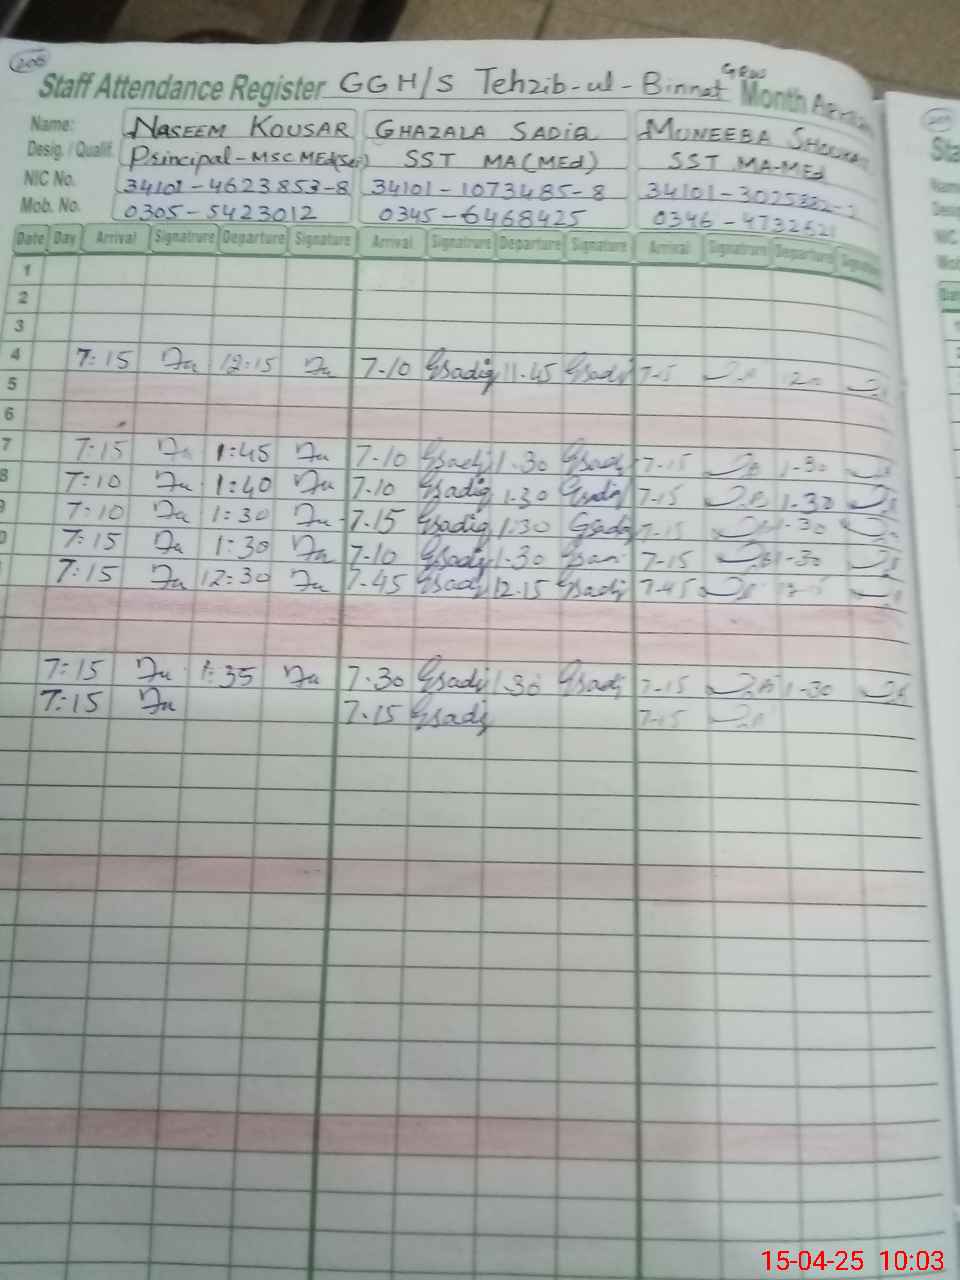 206
Staff Attendance Register GGH/S Tehzib-ul-Binnat GRW Month
Name: NASEEM KOUSAR GHAZALA SADIQ MUNEEBA
Desig. / Qualif. Principal-MSC MEd(Sci) SST MA(MEd) SST MA-MEd
NIC No. 34101-4623853-8 34101-1073485-8 34101-
Mob. No. 0305-5423012 0345-6468425 0346-
Date Day Arrival Signatrure Departure Signature Arrival Signatrure Departure Signature Arrival Signatrure Departure Signature
1
2
3
4 7:15 12:15 7-10 Gsadiq 11.45 Gsadiq
5
6
7 7:15 1:45 7-10 Gsadiq 1.30 Gsadiq 7-15 1-30
8 7:10 1:40 7.10 Gsadiq 1.30 Gsadiq 7-15 1-30
7:10 1:30 7.15 Gsadiq 1:30 Gsadiq 7-15 1-30
7:15 1:30 7-10 Gsadiq 1-30 7-15 1-30
7:15 12:30 7-45 Gsadiq 12.15 Gsadiq 7-45
7:15 1:35 7.30 Gsadiq 1.30 Gsadiq 7-15 1-30
7:15 7.15 Gsadiq 7-15
15-04-25 10:03